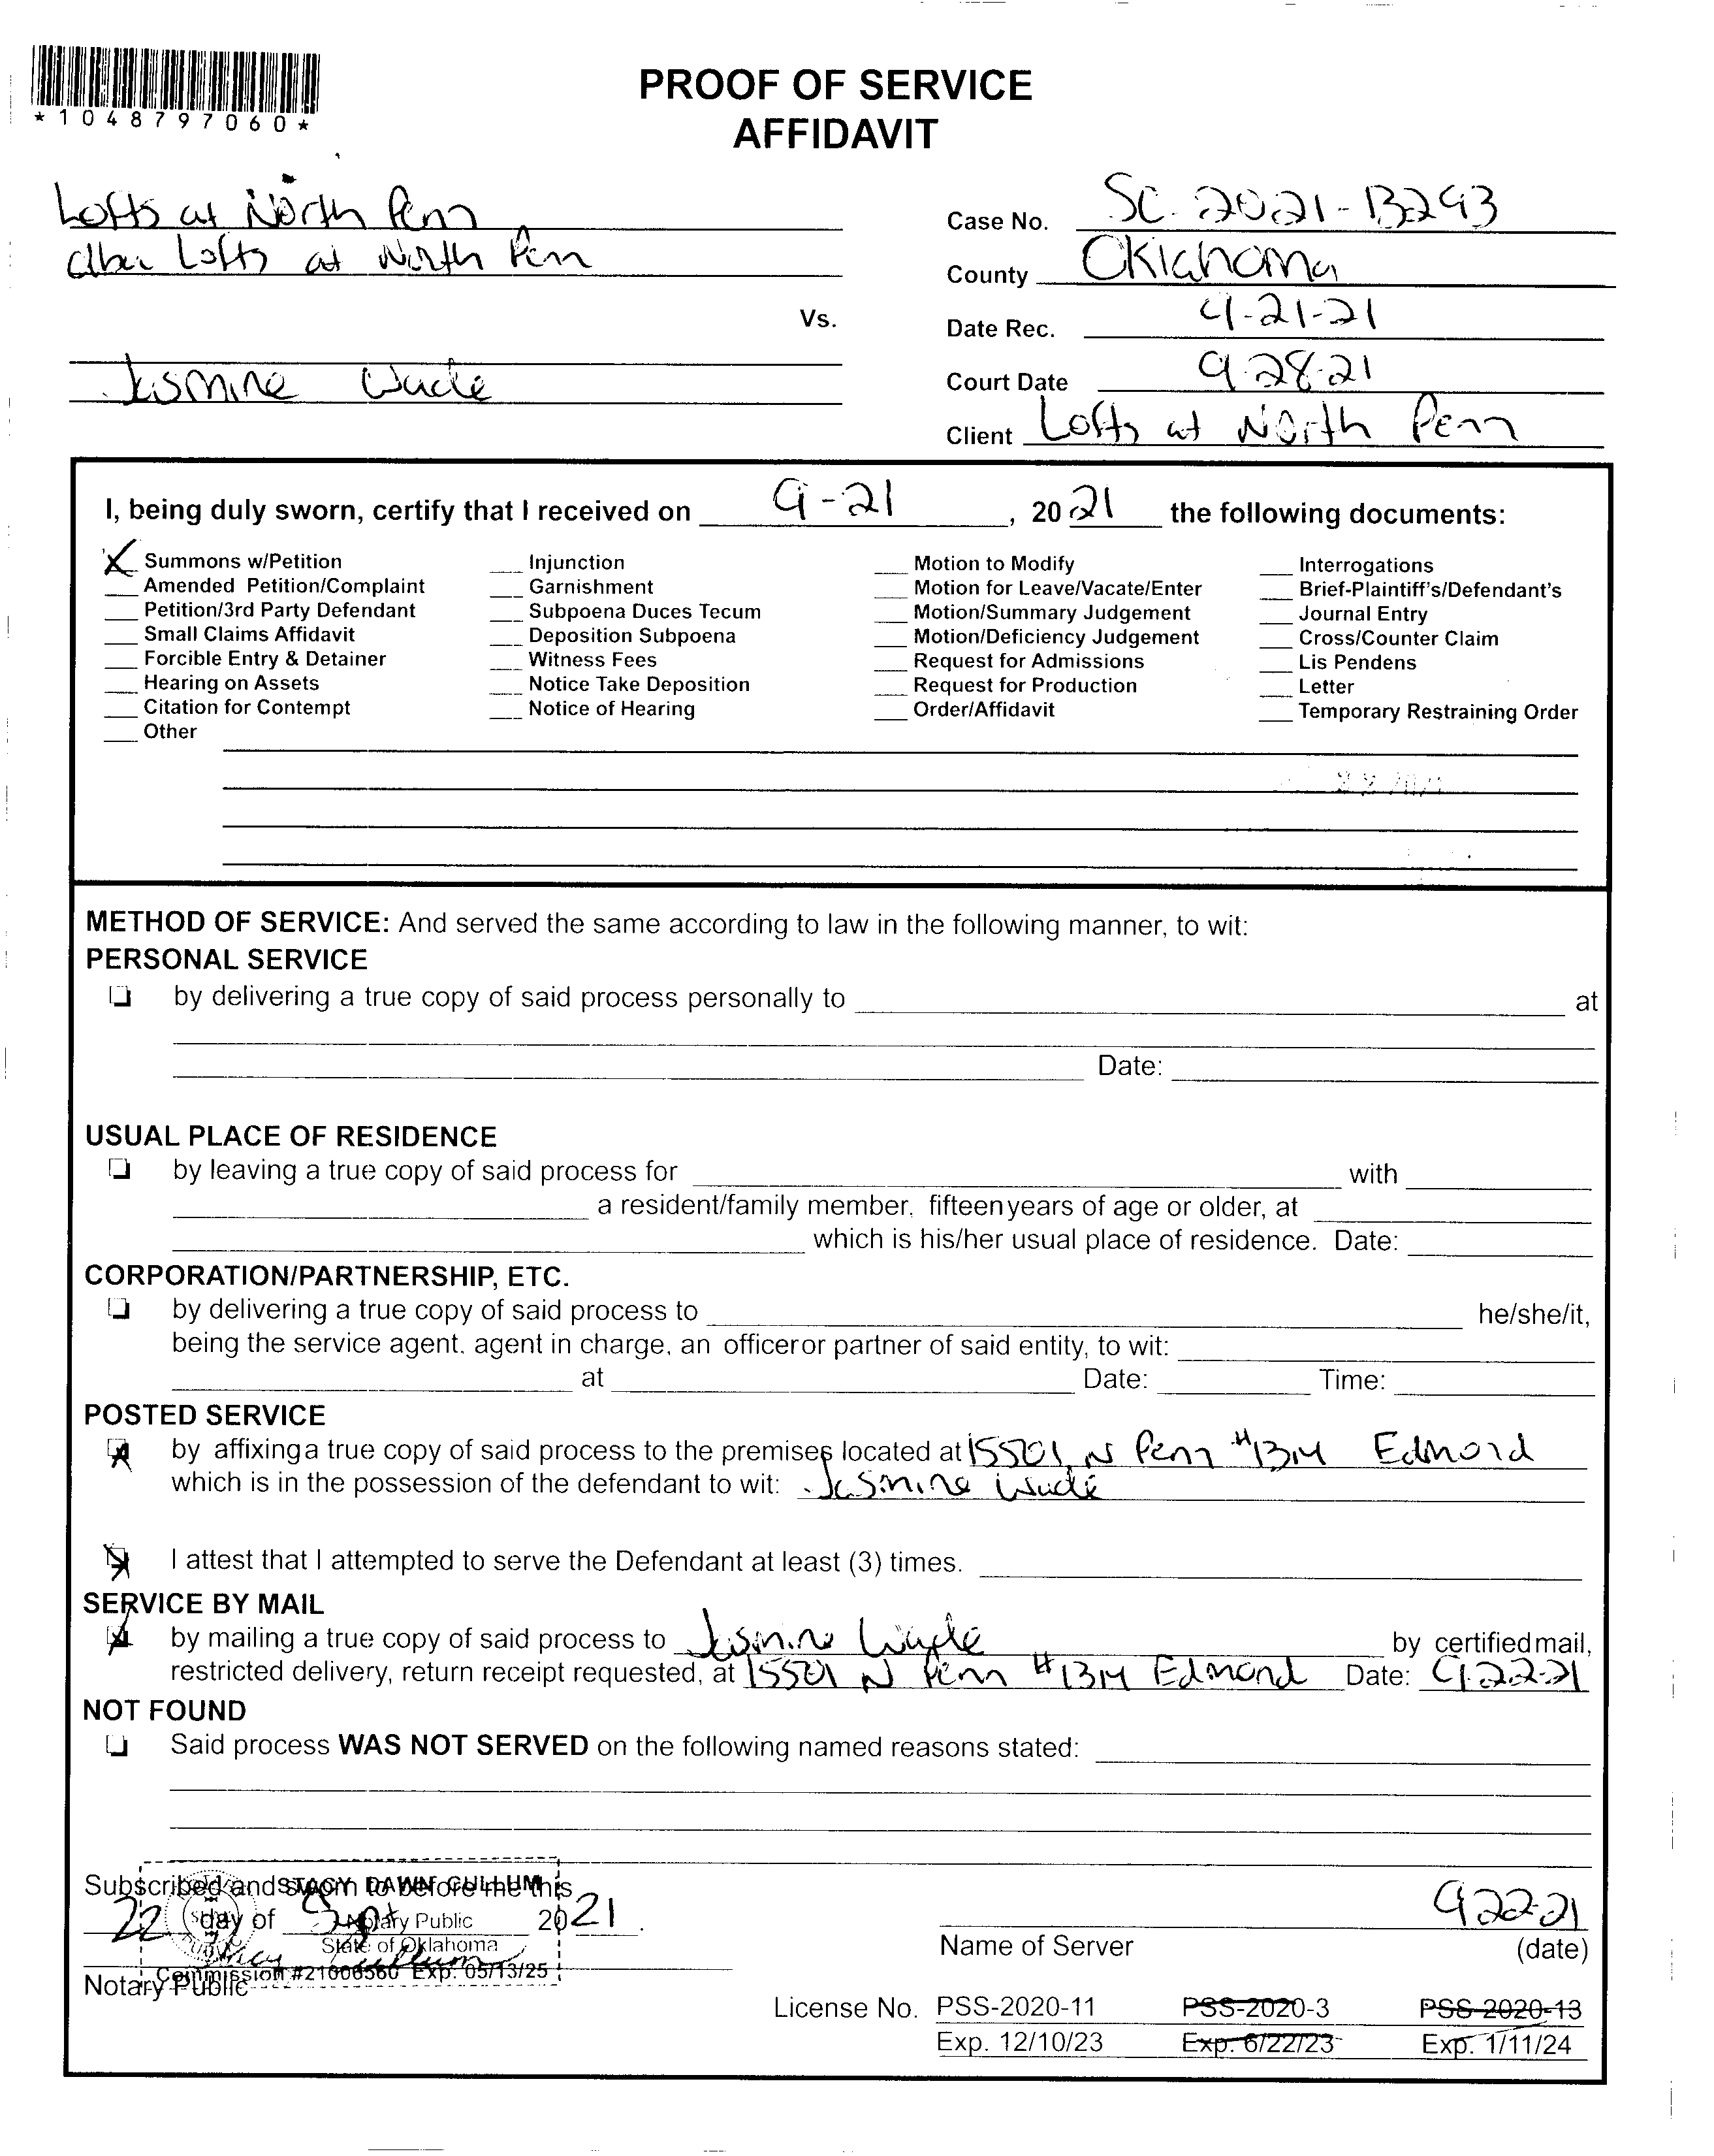 *1048797060*
PROOF OF SERVICE
AFFIDAVIT
Lofts at North Penn
dba Lofts at North Penn
Vs.
Jasmine Wade
Case No. SC-2021-13293
County Oklahoma
Date Rec. 9-21-21
Court Date 9-28-21
Client Lofts at North Penn
I, being duly sworn, certify that I received on 9-21, 2021 the following documents:
X Summons w/Petition
Amended Petition/Complaint
Petition/3rd Party Defendant
Small Claims Affidavit
Forcible Entry & Detainer
Hearing on Assets
Citation for Contempt
Other
Injunction
Garnishment
Subpoena Duces Tecum
Deposition Subpoena
Witness Fees
Notice Take Deposition
Notice of Hearing
Motion to Modify
Motion for Leave/Vacate/Enter
Motion/Summary Judgement
Motion/Deficiency Judgement
Request for Admissions
Request for Production
Order/Affidavit
Interrogations
Brief-Plaintiff's/Defendant's
Journal Entry
Cross/Counter Claim
Lis Pendens
Letter
Temporary Restraining Order
METHOD OF SERVICE: And served the same according to law in the following manner, to wit:
PERSONAL SERVICE
by delivering a true copy of said process personally to at
Date:
USUAL PLACE OF RESIDENCE
by leaving a true copy of said process for with
a resident/family member, fifteen years of age or older, at
which is his/her usual place of residence. Date:
CORPORATION/PARTNERSHIP, ETC.
by delivering a true copy of said process to he/she/it,
being the service agent, agent in charge, an officer or partner of said entity, to wit:
at Date: Time:
POSTED SERVICE
by affixing a true copy of said process to the premises located at 15501 N Penn #1314 Edmond
which is in the possession of the defendant to wit: Jasmine Wade
I attest that I attempted to serve the Defendant at least (3) times.
SERVICE BY MAIL
by mailing a true copy of said process to Jasmine Wade by certified mail,
restricted delivery, return receipt requested, at 15501 N Penn #1314 Edmond Date: 9-22-21
NOT FOUND
Said process WAS NOT SERVED on the following named reasons stated:
Subscribed and sworn to before me this
22 day of Sept 2021.
Notary Public
STACY DAWN CULLUM
Notary Public
State of Oklahoma
Commission #21006560 Exp. 05/13/25
9-22-21
Name of Server (date)
License No. PSS-2020-11 PSS-2020-3 PSS-2020-13
Exp. 12/10/23 Exp. 6/22/23 Exp. 1/11/24